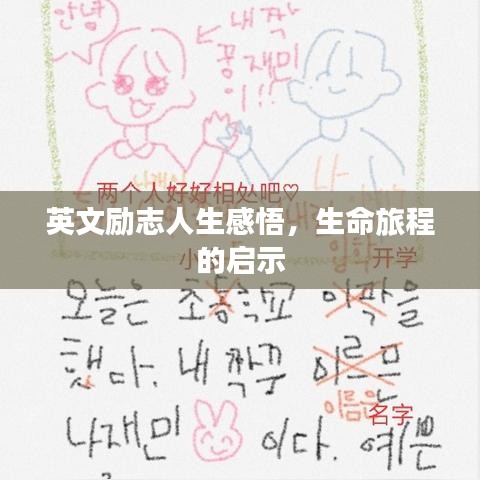 안녕
내짝
꽁재민
이!!
两个人好好相处吧♡
英文励志人生感悟，生命旅程
的启示
小
입학 开学
오늘은 초등학교 이팍을
햇다. 내 짝꾸 이르믄
이름은 名字
나재민 이다. 예쁜